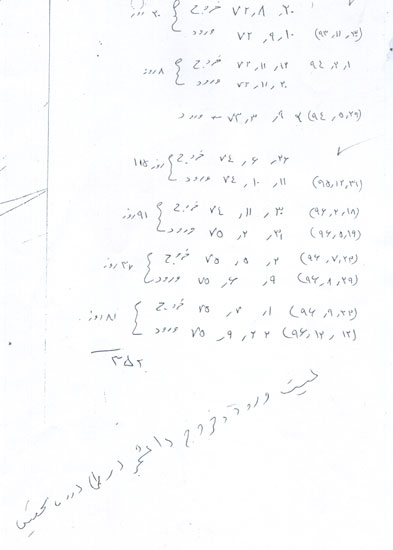 ۲۰ ر ۸ ر ۷۲ خروج } ۲۰ روز
(۹۳٫۱۱٫۳۰) ۱۰ ر ۹ ر ۷۲ ورود
۹۴٫۲٫۱ ۱۲ ر ۱۱ ر ۷۲ خروج } ۸ روز
۲۰ ر ۱۱ ر ۷۲ ورود
(۹۴٫۵٫۲۹) ۹ ر ۳ ر ۷۳ ورود
۲۶ ر ۶ ر ۷۴ خروج } ۱۱۵ روز
(۹۵٫۱۲٫۳۱) ۱۱ ر ۱۰ ر ۷۴ ورود
(۹۶٫۲٫۱۸) ۳۰ ر ۱۱ ر ۷۴ خروج } ۹۱ روز
(۹۶٫۵٫۱۹) ۳۱ ر ۲ ر ۷۵ ورود
(۹۶٫۷٫۲۳) ۲ ر ۵ ر ۷۵ خروج } ۳۷ روز
(۹۶٫۸٫۲۹) ۹ ر ۶ ر ۷۵ ورود
(۹۶٫۹٫۲۲) ۱ ر ۷ ر ۷۵ خروج } ۸۱ روز
(۹۶٫۱۲٫۱۲) ۲۲ ر ۹ ر ۷۵ ورود
۳۵۲
لیست ورود و خروج دانشجو در طی دوره تحصیلی